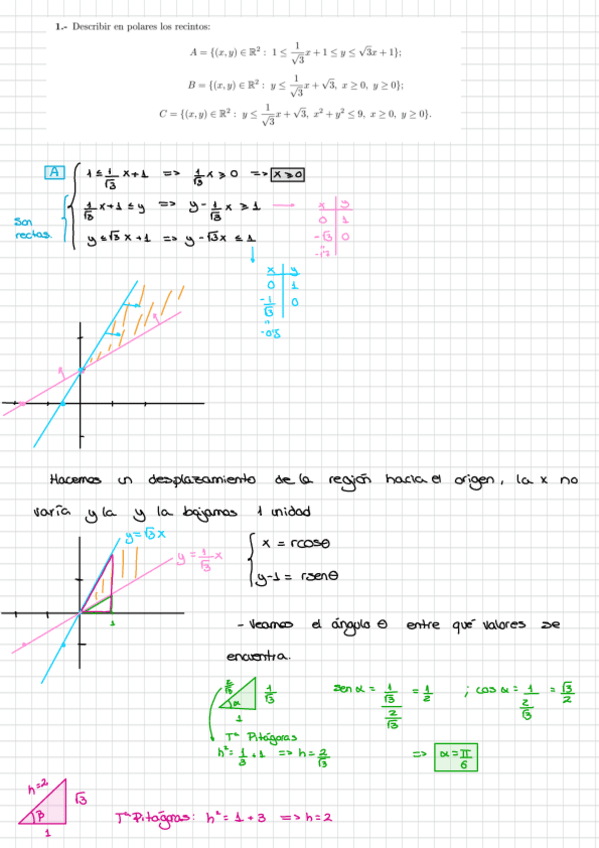 1.- Describir en polares los recintos:
A = {(x, y) ∈ ℝ² : 1 ≤ 1/√3 x + 1 ≤ y ≤ √3x + 1};
B = {(x, y) ∈ ℝ² : y ≤ 1/√3 x + √3, x ≥ 0, y ≥ 0};
C = {(x, y) ∈ ℝ² : y ≤ 1/√3 x + √3, x² + y² ≤ 9, x ≥ 0, y ≥ 0}.
A
1 ≤ 1/√3 x + 1 => 1/√3 x ≥ 0 => x ≥ 0
1/√3 x + 1 ≤ y => y - 1/√3 x ≥ 1
y ≤ √3 x + 1 => y - √3x ≤ 1
Son
rectas
x y
0 1
-√3 0
-1'7
x y
0 1
-1/√3 0
-0'5
Hacemos un desplazamiento de la región hacia el origen, la x no
varía y la y la bajamos 1 unidad
y = √3 x
y = 1/√3 x
1
x = rcosθ
y-1 = rsenθ
- Veamos el ángulo θ entre qué valores se
encuentra.
2/√3
1/√3
α
1
sen α = 1/√3 / 2/√3 = 1/2 ; cos α = 1 / 2/√3 = √3/2
Tª Pitágoras
h² = 1/3 + 1 => h = 2/√3
=> α = π/6
h=2
√3
β
1
Tª Pitágoras: h² = 1 + 3 => h = 2